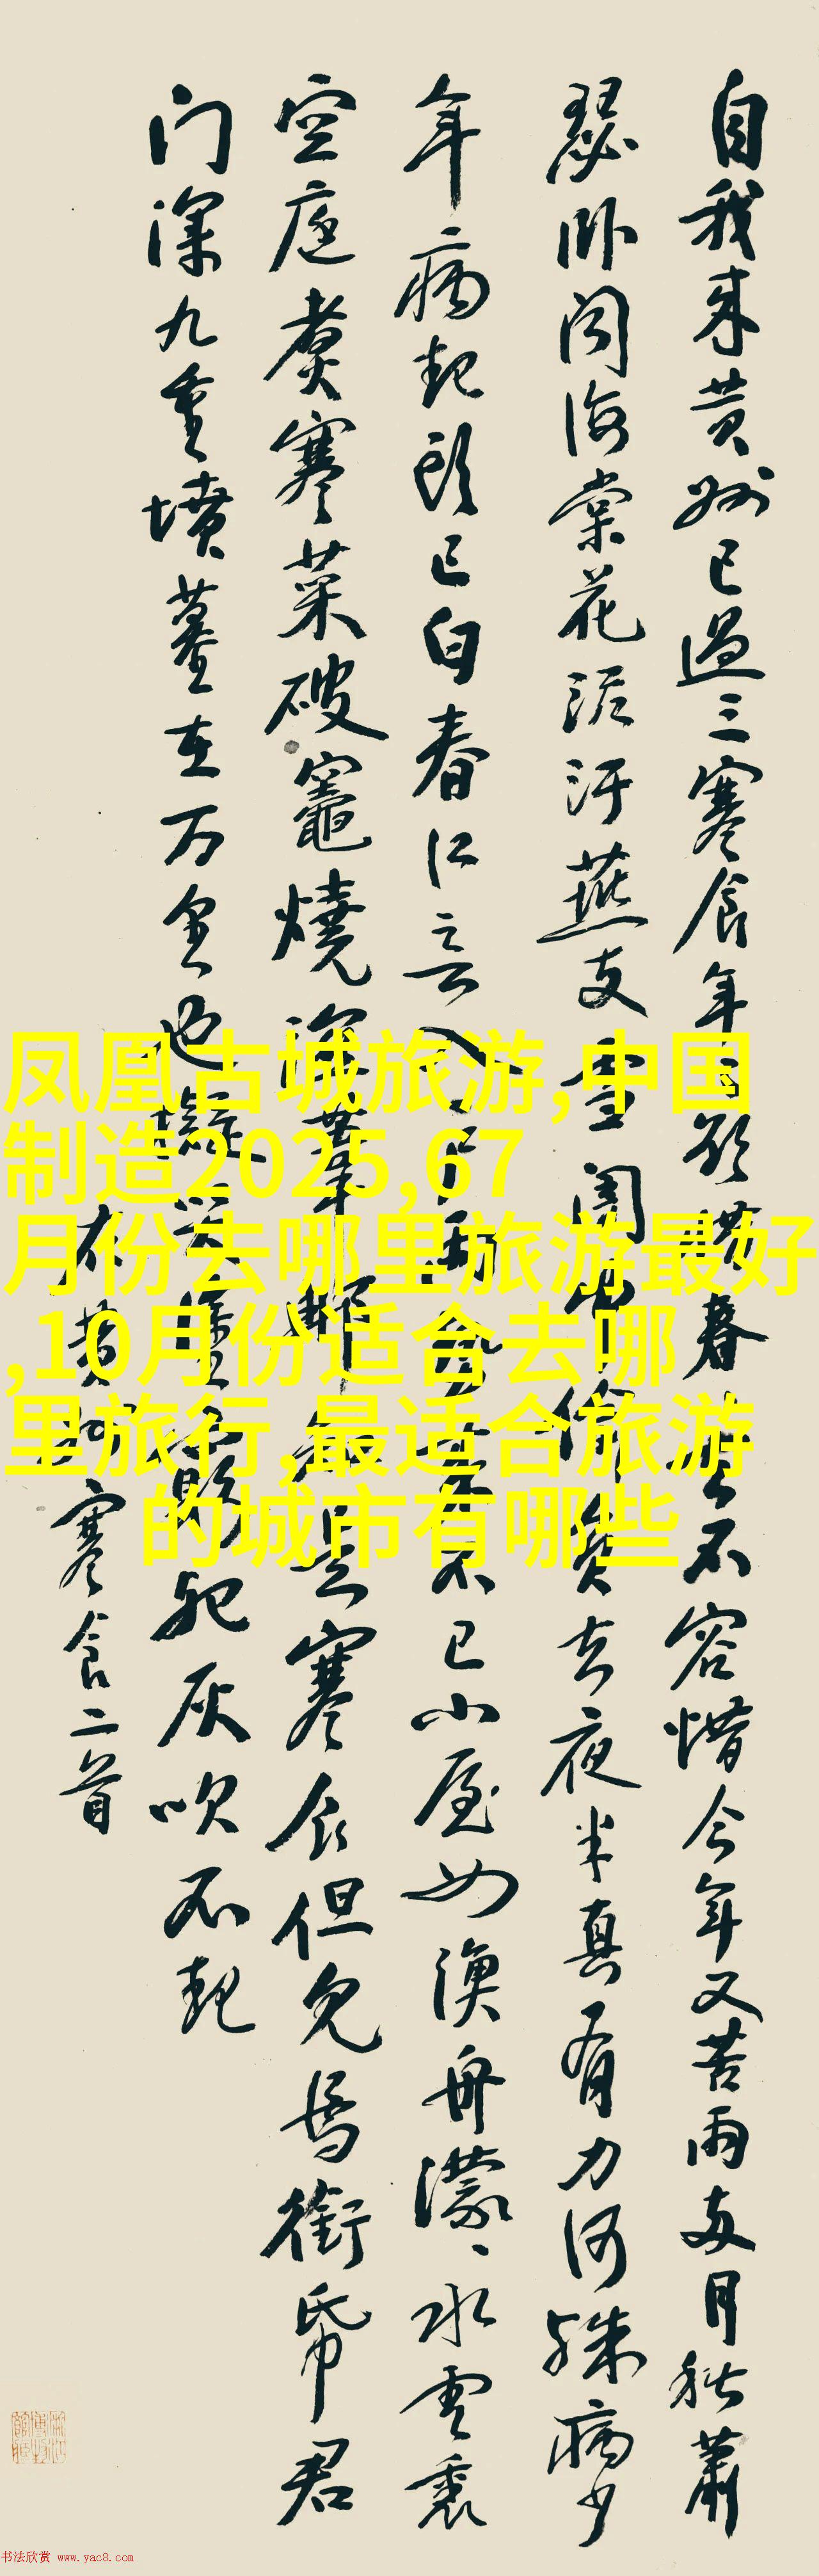 自我来黄州已過三寒食年年欲惜春春去不容惜今年又苦雨两月秋蕭
瑟卧闻海棠花泥汙燕支雪闇中偷負去夜半真有力何殊病少
年病起頭已白春江欲入户雨勢来不已小屋如漁舟濛濛水雲裏
空庭煑寒菜破竈燒濕葦那知是寒食但見烏銜帋君
门深九重墳墓在万里也擬哭塗窮死灰吹不起
右黄州寒食二首
凤凰古城旅游,中国
制造2025,67
月份去哪里旅游最好
,10月份适合去哪
里旅行,最适合旅游
的城市有哪些
书法欣赏 www.yac8.com